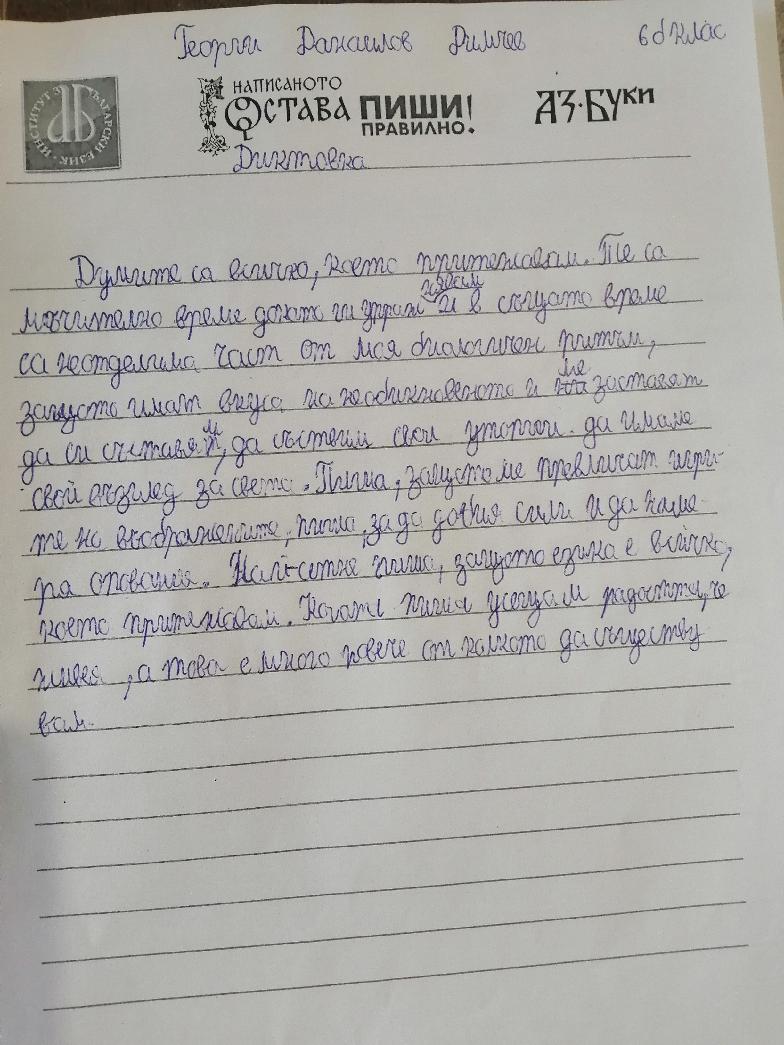 Георги Данаилов Димчев 6б клас
ИНСТИТУТ ЗА БЪЛГАРСКИ ЕЗИК
НАПИСАНОТО
ОСТАВА ПИШИ
ПРАВИЛНО!
АЗ·БУКИ
Диктовка
Думите са всичко, което притежавам. Те са
мъчително време докато ги
извеси
и в същото време
са неотделима част от моя биологичен ритъм,
защото имат вкуса на необикновеното и ме заставят
да си съставям, да състеша свои утопии. да имаме
свой възглед за света. Пиша, защото ме превличат игри-
те на въображените, пиша, за да добия сили и да наме-
ра опования. Най-сетне пиша, защото езика е всичко,
което притежавам. Когато пиша усещам радостта, че
живея, а това е много повече от колкото да съществу
вам.